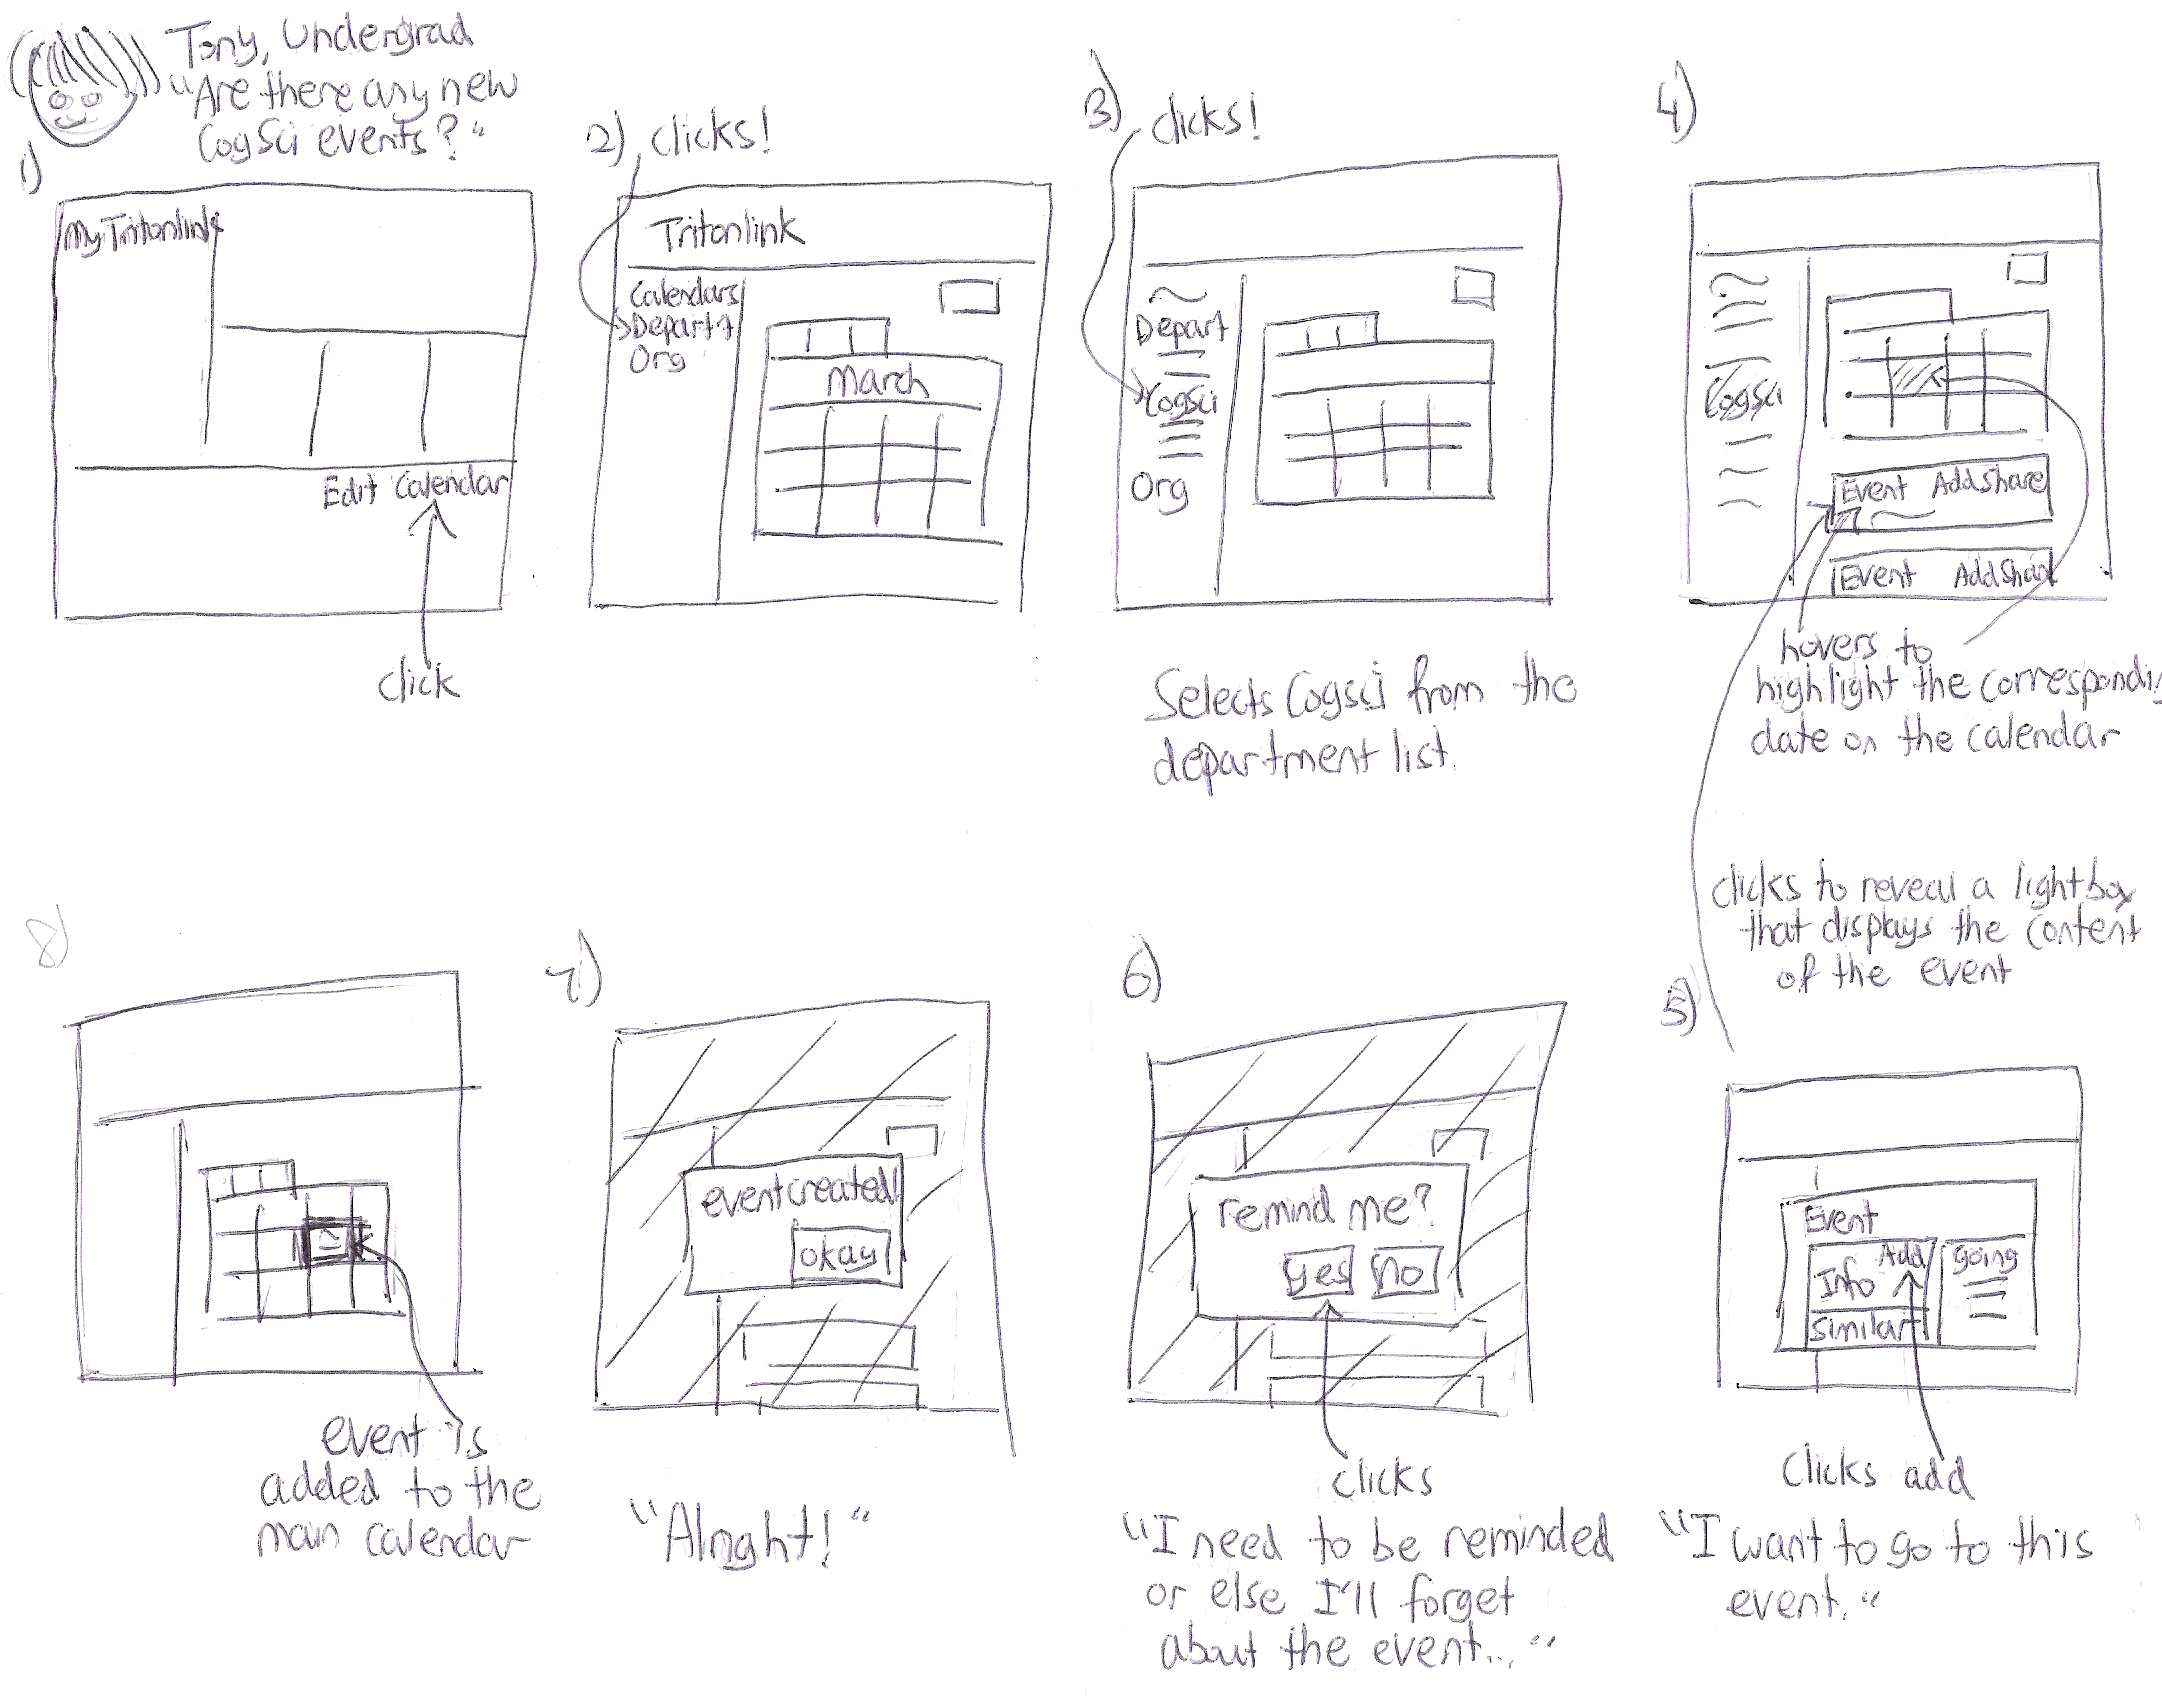 Tony, Undergrad
"Are there any new
CogSci events?"
1)
My Tritonlink
Edit Calendar
click
2) clicks!
Tritonlink
Calendars
Depart
Org
March
3) clicks!
Depart
Cogsci
Org
Selects Cogsci from the
department list.
4)
Cogsci
Event Add Share
Event Add Shar
hovers to
highlight the correspondi
date on the calendar
clicks to reveal a lightbox
that displays the content
of the event
5)
Event
Add
Info
Similar
going
clicks add
"I want to go to this
event."
6)
remind me?
yes no
clicks
"I need to be reminded
or else I'll forget
about the event..."
7)
event created!
okay
"Alright!"
8)
event is
added to the
main calendar